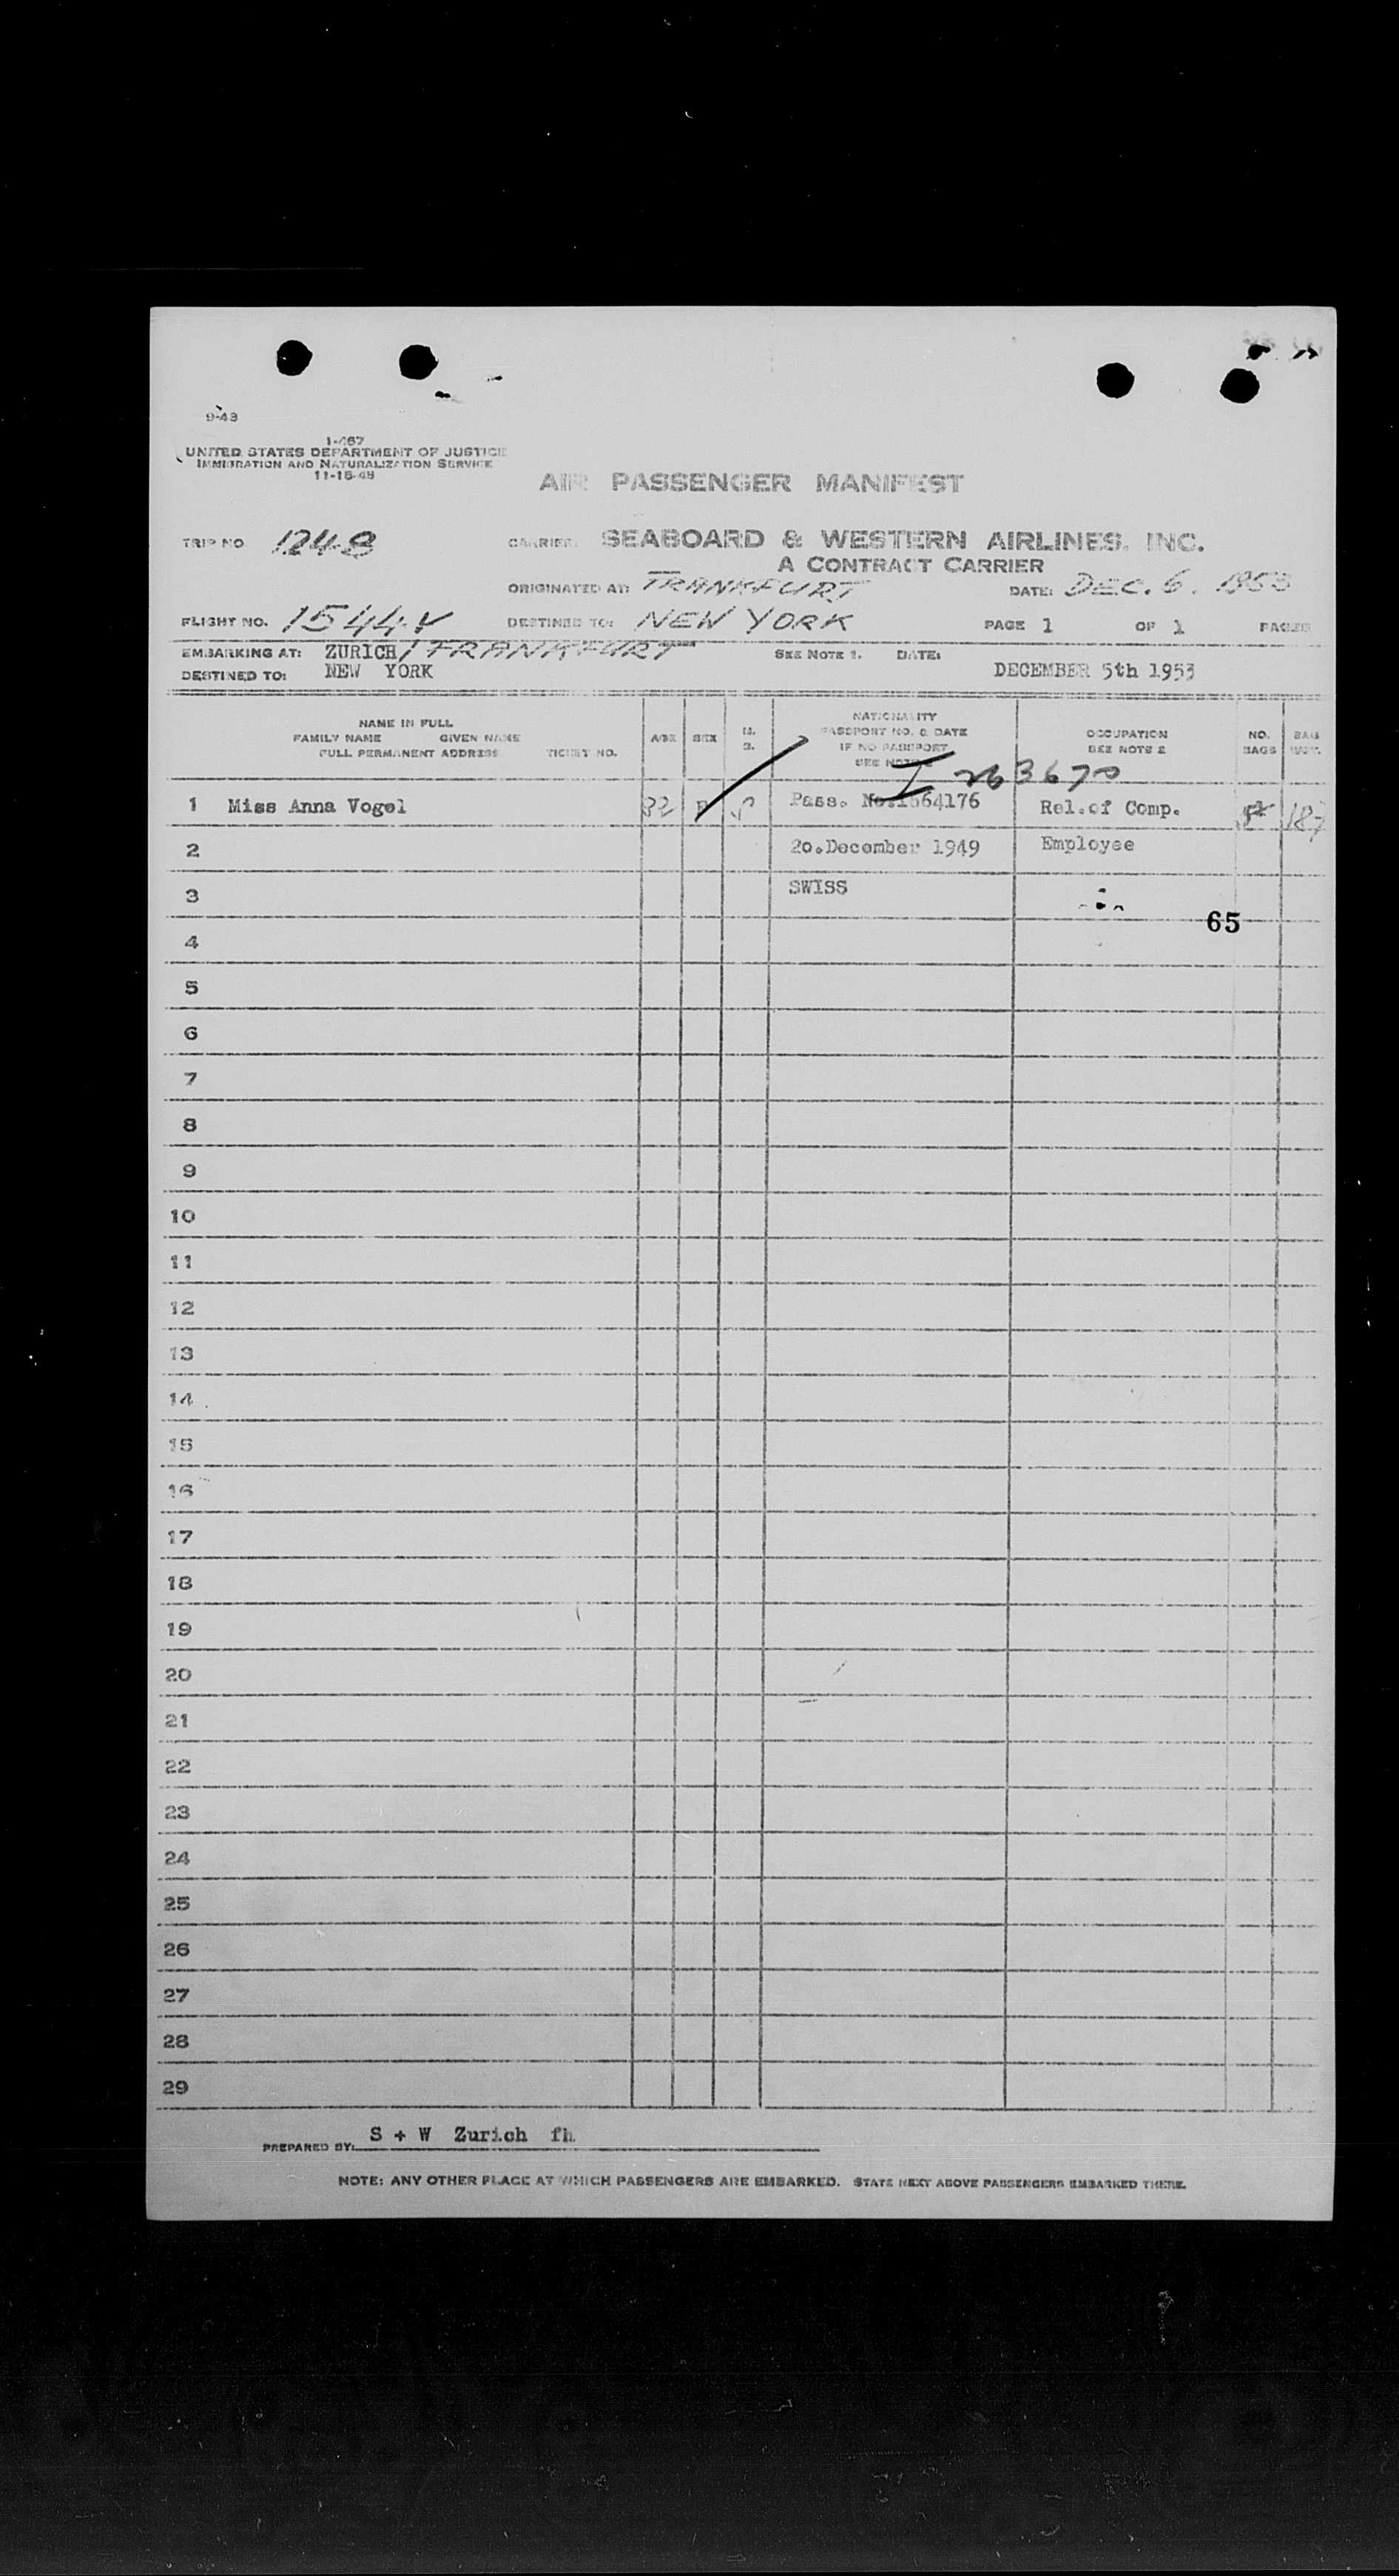 9-43
1-467
UNITED STATES DEPARTMENT OF JUSTICE
IMMIGRATION AND NATURALIZATION SERVICE
11-15-48
AIR PASSENGER MANIFEST
TRIP NO. 1248 CARRIER: SEABOARD & WESTERN AIRLINES, INC.
A CONTRACT CARRIER
ORIGINATED AT: FRANKFURT DATE: DEC. 6. 1953
FLIGHT NO. 1544V DESTINED TO: NEW YORK PAGE 1 OF 1 PAGES
EMBARKING AT: ZURICH/FRANKFURT SEE NOTE 1. DATE:
DESTINED TO: NEW YORK DECEMBER 5th 1953
NAME IN FULL
FAMILY NAME GIVEN NAME
FULL PERMANENT ADDRESS TICKET NO.
AGE SEX M. S.
NATIONALITY
PASSPORT NO. & DATE
IF NO PASSPORT
SEE NOTE 2
OCCUPATION
SEE NOTE 2
NO. BAGS
BAG WGT.
I 263670
1 Miss Anna Vogel 32 F S Pass. No.1564176 Rel.of Comp. 187
2 20.December 1949 Employee
3 SWISS
65
4
5
6
7
8
9
10
11
12
13
14
15
16
17
18
19
20
21
22
23
24
25
26
27
28
29
PREPARED BY: S + W Zurich fh
NOTE: ANY OTHER PLACE AT WHICH PASSENGERS ARE EMBARKED. STATE NEXT ABOVE PASSENGERS EMBARKED THERE.